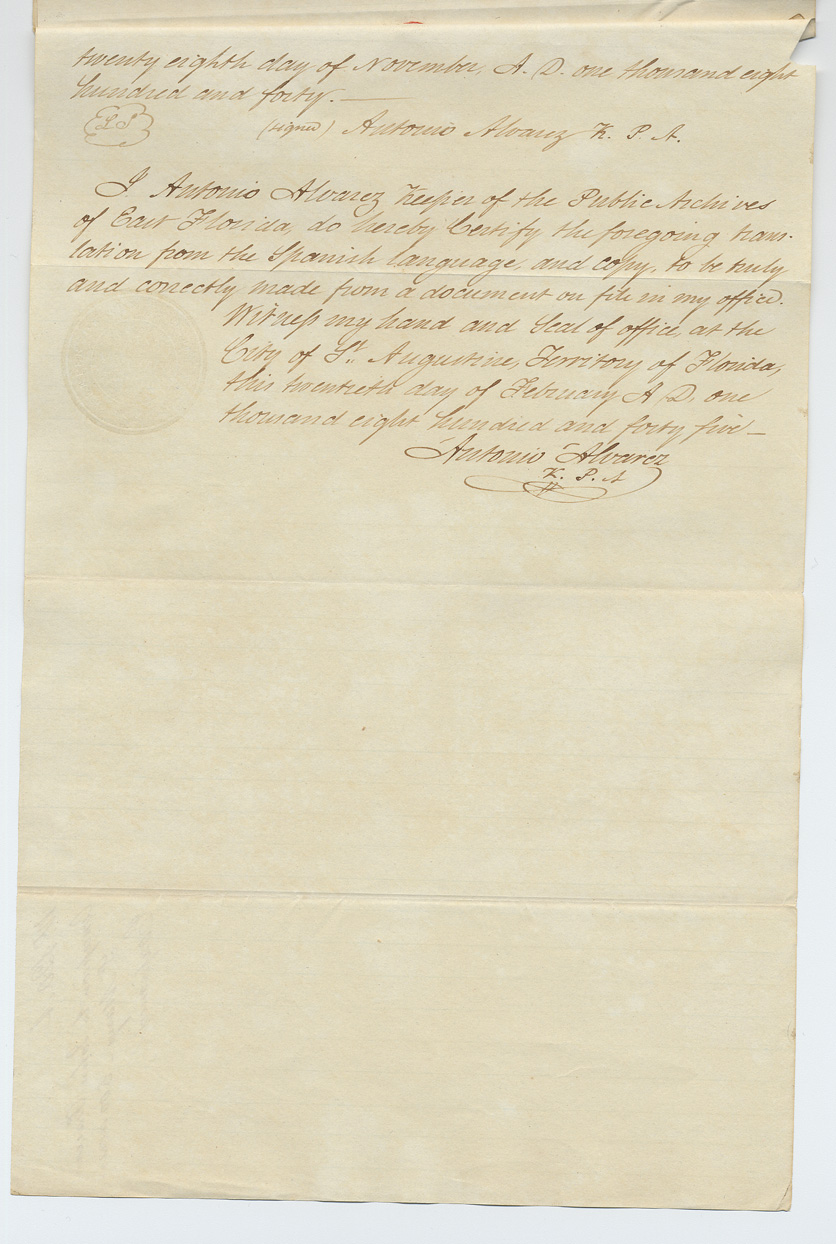 twenty eighth day of November, A. D. one thousand eight
hundred and forty. —
L S
(signed) Antonio Alvarez K. P. A.
I Antonio Alvarez Keeper of the Public Archives
of East Florida, do hereby Certify the foregoing trans-
lation from the Spanish language, and copy, to be truly
and correctly made from a document on file in my office.
Witness my hand and Seal of office, at the
City of St. Augustine, Territory of Florida,
this twentieth day of February A D. one
thousand eight hundred and forty five —
Antonio Alvarez
K. P. A